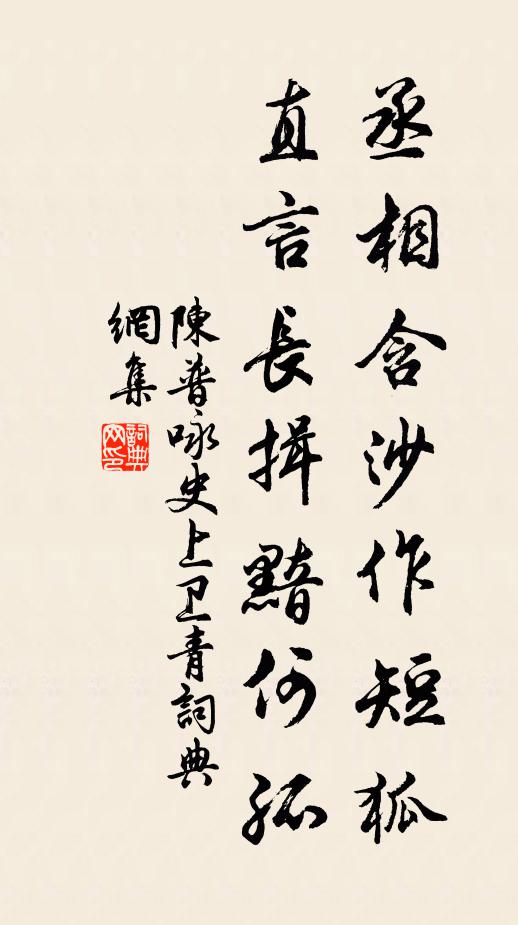 丞相含沙作短狐
直言長揖黯何孤
陳普咏史上卫青詞典
網集
詞典
网印